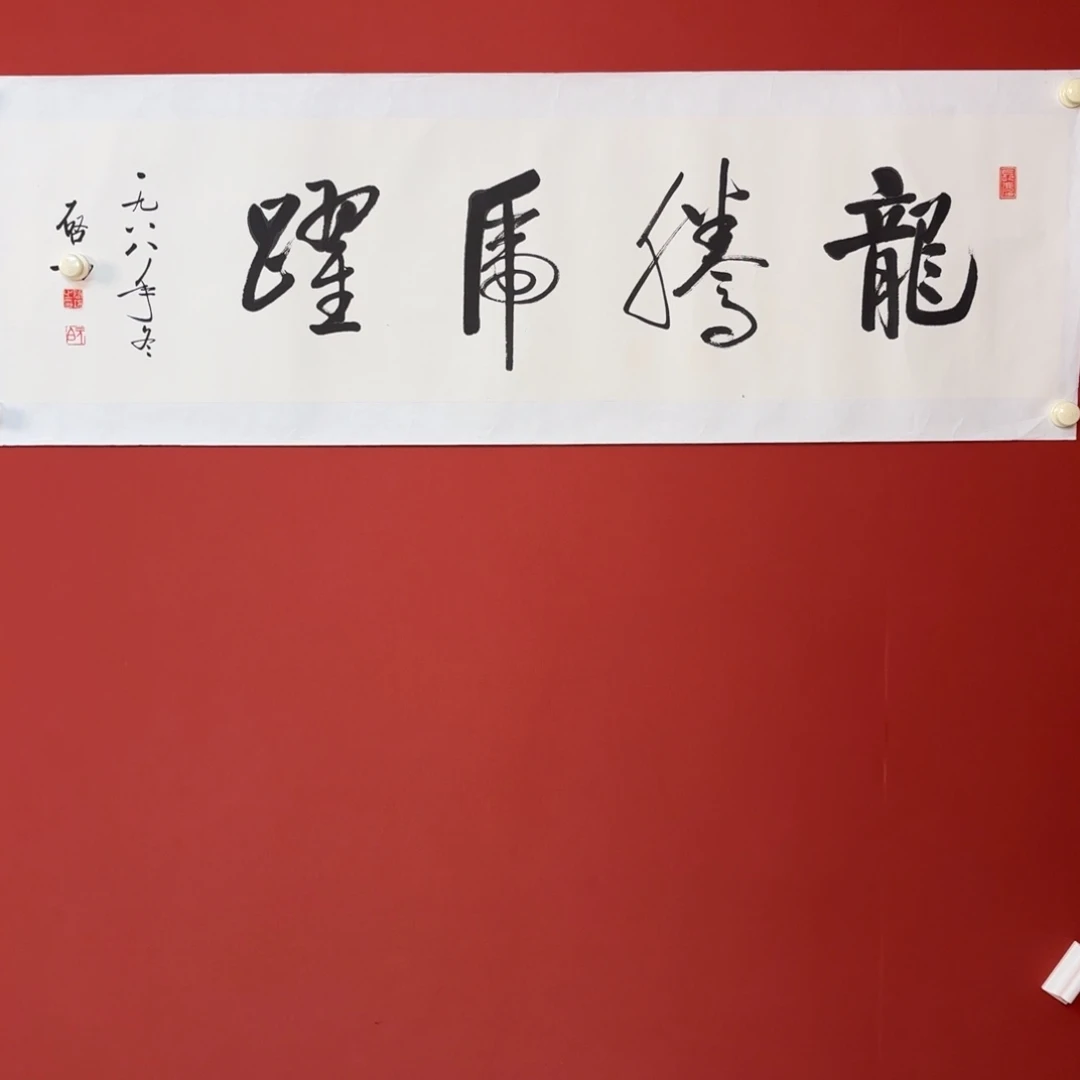 龍騰虎躍
一九八八年冬
啓